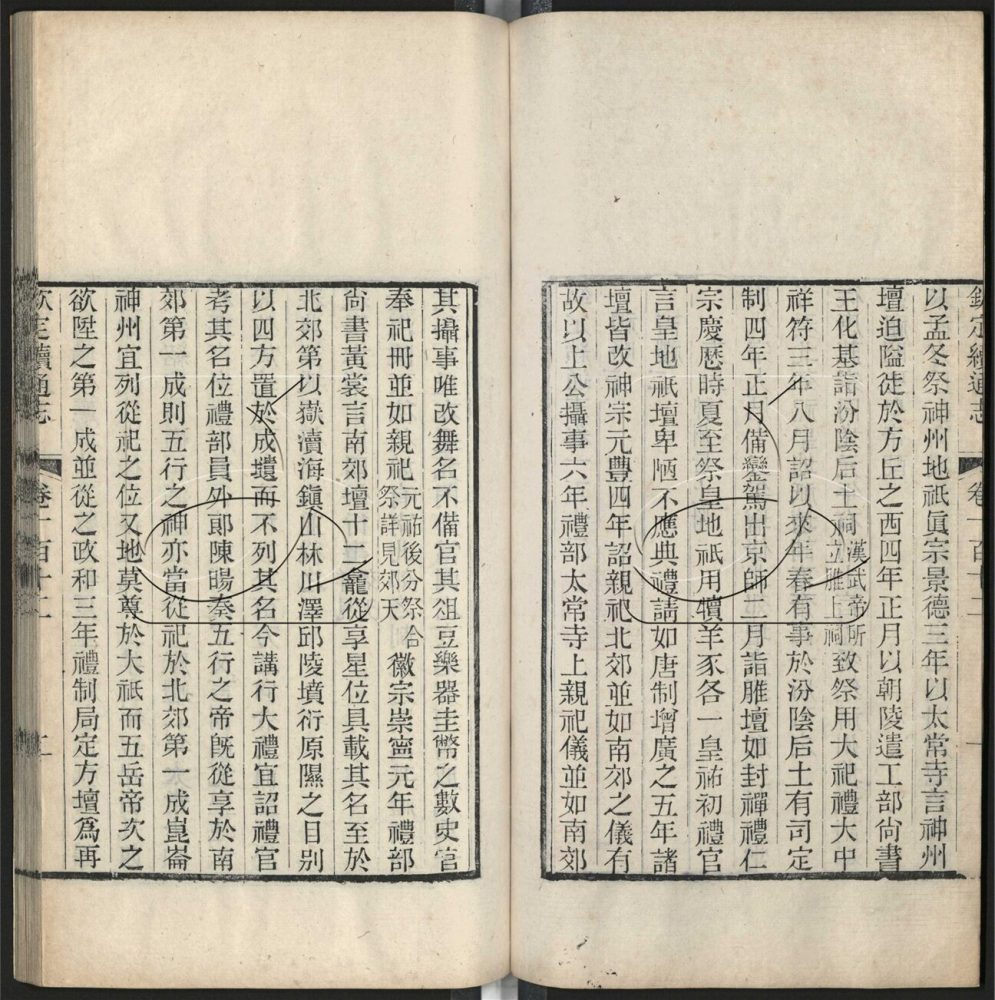 欽定續通志 卷一百十二 一
以孟冬祭神州地祇眞宗景德三年以太常寺言神州
壇迫隘徙於方丘之西四年正月以朝陵遣工部尙書
王化基詣汾陰后土祠漢武帝所立脽上祠致祭用大祀禮大中
祥符三年八月詔以來年春有事於汾陰后土有司定
制四年正月備鑾駕出京師二月詣脽壇如封禪禮仁
宗慶歷時夏至祭皇地祇用犢羊豕各一皇祐初禮官
言皇地祇壇卑陋不應典禮請如唐制增廣之五年諸
壇皆改神宗元豐四年詔親祀北郊並如南郊之儀有
故以上公攝事六年禮部太常寺上親祀儀並如南郊
其攝事唯改舞名不備官其俎豆樂器圭幣之數史官
奉祀冊並如親祀元祐後分祭合祭詳見郊天徽宗崇寧元年禮部
尙書黃裳言南郊壇十二龕從享星位具載其名至於
北郊第以嶽瀆海鎭山林川澤邱陵墳衍原隰之目別
以四方置於成壝而不列其名今講行大禮宜詔禮官
考其名位禮部員外郎陳暘奏五行之帝旣從享於南
郊第一成則五行之神亦當從祀於北郊第一成崑崙
神州宜列從祀之位又地莫尊於大祇而五岳帝次之
欲陞之第一成並從之政和三年禮制局定方壇爲再
欽定續通志 卷一百十二 二